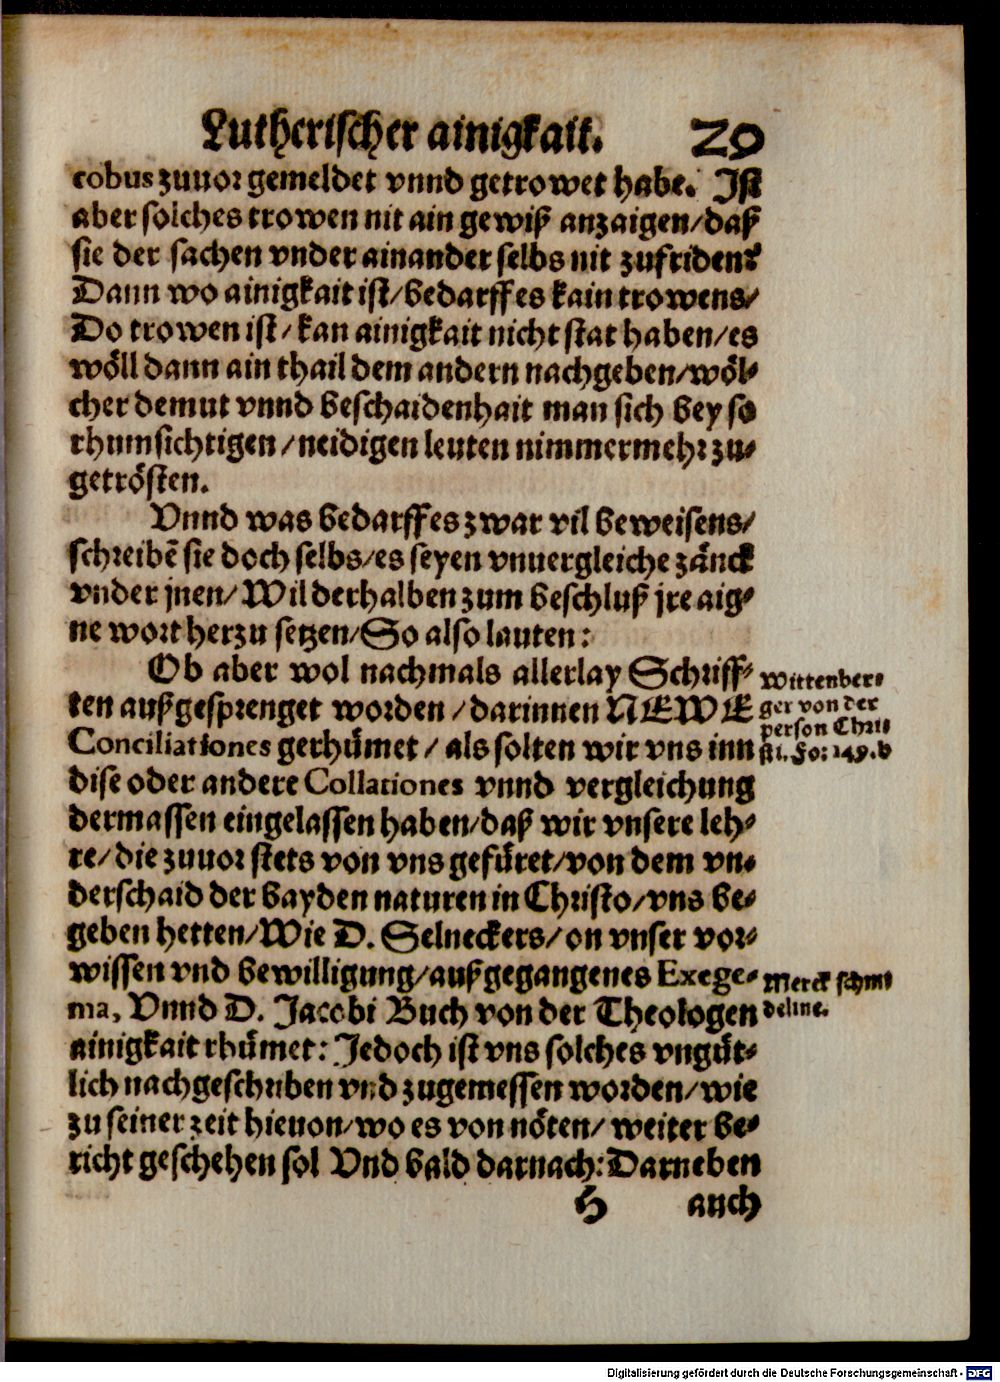 Lutherischer ainigkait. 29
cobus zuuor gemeldet vnnd getrowet habe. Ist
aber solches trowen nit ain gewiß anzaigen/daß
sie der sachen vnder ainander selbs nit zufriden?
Dann wo ainigkait ist/bedarff es kain trowens/
Do trowen ist/kan ainigkait nicht stat haben/es
wöll dann ain thail dem andern nachgeben/wöl-
cher demut vnnd beschaidenhait man sich bey so
rhumsichtigen/neidigen leuten nimmermehr zu-
getrösten.
Vnnd was bedarff es zwar vil beweisens/
schreibē sie doch selbs/es seyen vnuergleiche zänck
vnder jnen/Wil derhalben zum beschluß jre aig-
ne wort herzu setzen/So also lauten:
Ob aber wol nachmals allerlay Schriff-
ten außgesprenget worden/darinnen NEWE
Conciliationes gerhümet/als solten wir vns inn
dise oder andere Collationes vnnd vergleichung
dermassen eingelassen haben/daß wir vnsere leh-
re/die zuuor stets von vns gefüret/von dem vn-
derschaid der bayden naturen in Christo/vns be-
geben hetten/Wie D. Selneckers/on vnser vor-
wissen vnd bewilligung/außgegangenes Exege-
ma, Vnnd D. Jacobi Buch von der Theologen
ainigkait rhümet: Jedoch ist vns solches vngüt-
lich nachgeschriben vnd zugemessen worden/wie
zu seiner zeit hieuon/wo es von nöten/weiter be-
richt geschehen sol Vnd bald darnach: Darneben
H auch
Wittenber-
ger von der
person Chri-
sti. Fo: 149.b
Merck schmi-
deline.
Digitalisierung gefördert durch die Deutsche Forschungsgemeinschaft - DFG